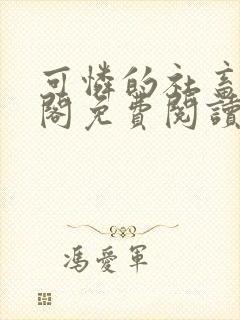 可憐的社畜
閣免費閱讀
馮愛軍